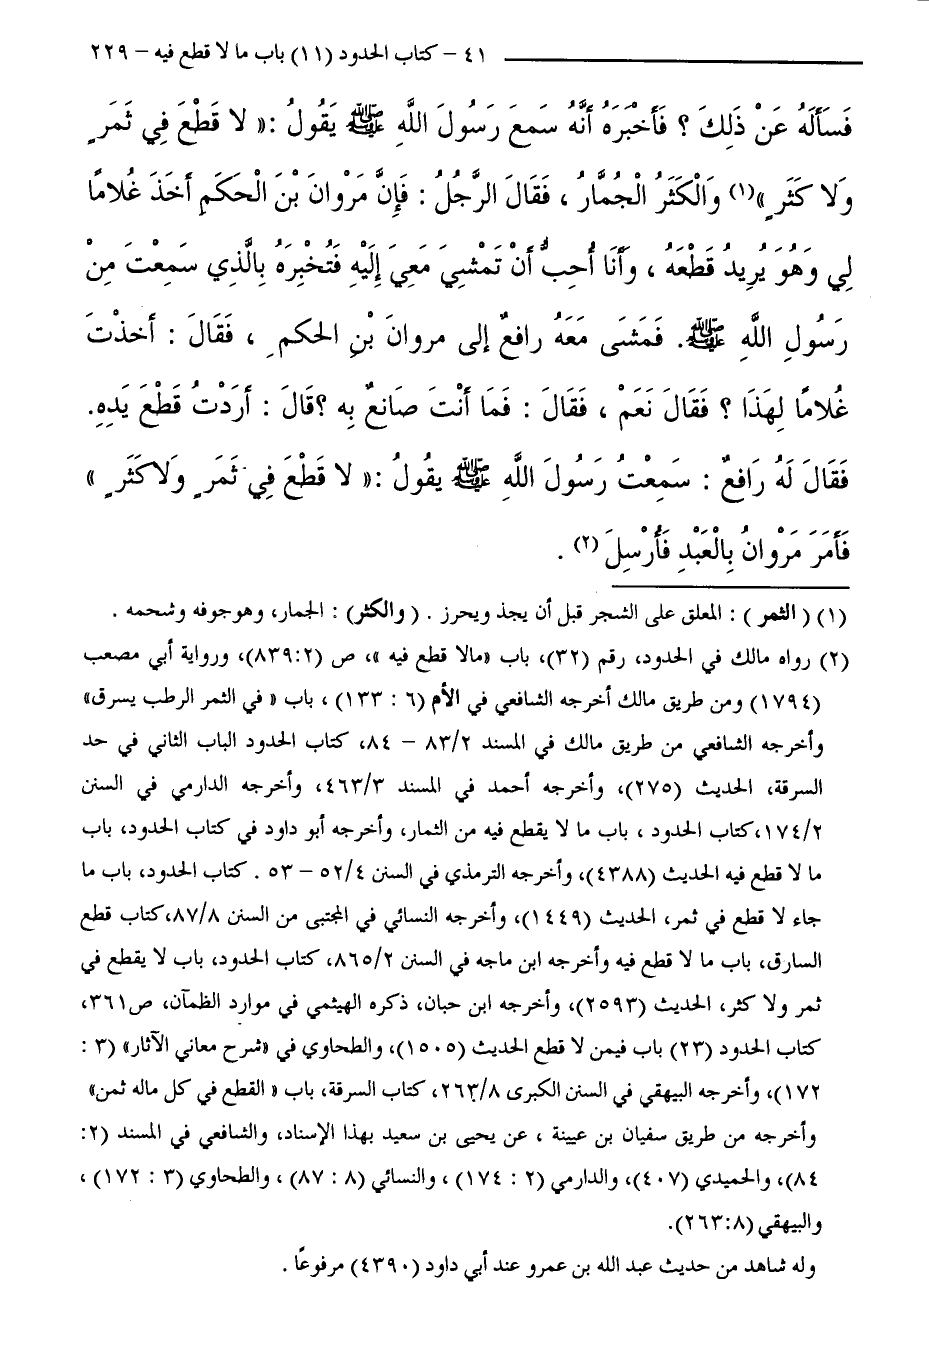 ٤١ – كتاب الحدود (١١) باب ما لا قطع فيه – ٢٢٩
فَسَأَلَهُ عَنْ ذَلِكَ ؟ فَأَخْبَرَهُ أَنَّهُ سَمعَ رَسُولَ اللَّهِ ﷺ يَقُولُ :« لا قَطْعَ فِي ثَمَرٍ
وَلا كَثَرٍ »(١) وَالْكَثَرُ الْجُمَّارُ ، فَقَالَ الرَّجُلُ : فَإِنَّ مَرْوانَ بْنَ الْحَكَمِ أَخَذَ غُلامًا
لِي وَهُوَ يُرِيدُ قَطْعَهُ ، وَأَنَا أُحِبُّ أَنْ تَمْشِيَ مَعِيَ إِلَيْهِ فَتُخْبِرَهُ بِالَّذِي سَمِعْتَ مِنْ
رَسُولِ اللَّهِ ﷺ. فَمَشَى مَعَهُ رافعٌ إلى مروانَ بْنِ الحكمِ ، فَقَالَ : أخذْتَ
غُلامًا لِهَذَا ؟ فَقَالَ نَعَمْ ، فَقَالَ : فَمَا أَنْتَ صَانعٌ بِه ؟قَالَ : أرَدْتُ قَطْعَ يَدِهِ.
فَقَالَ لَهُ رَافعٌ : سَمِعْتُ رَسُولَ اللَّهِ ﷺ يقُولُ :« لا قَطْعَ فِي ثَمَرٍ وَلاكَثَرٍ »
فَأَمَرَ مَرْوانُ بِالْعَبْدِ فَأُرْسِلَ (٢) .
(١) ( الثمر ) : المعلق على الشجر قبل أن يجذ ويحرز . ( والكثر) : الجمار، وهوجوفه وشحمه .
(٢) رواه مالك في الحدود، رقم (٣٢)، باب «مالا قطع فيه »، ص (٨٣٩:٢)، ورواية أبي مصعب
(١٧٩٤) ومن طريق مالك أخرجه الشافعي في الأم (٦ : ١٣٣) ، باب « في الثمر الرطب يسرق»
وأخرجه الشافعي من طريق مالك في المسند ٨٣/٢ – ٨٤، كتاب الحدود الباب الثاني في حد
السرقة، الحديث (٢٧٥)، وأخرجه أحمد في المسند ٤٦٣/٣، وأخرجه الدارمي في السنن
١٧٤/٢،كتاب الحدود ، باب ما لا يقطع فيه من الثمار، وأخرجه أبو داود في كتاب الحدود، باب
ما لا قطع فيه الحديث (٤٣٨٨)، وأخرجه الترمذي في السنن ٥٢/٤ – ٥٣ . كتاب الحدود، باب ما
جاء لا قطع في ثمر، الحديث (١٤٤٩)، وأخرجه النسائي في المجتبى من السنن ٨٧/٨،كتاب قطع
السارق، باب ما لا قطع فيه وأخرجه ابن ماجه في السنن ٨٦٥/٢، كتاب الحدود، باب لا يقطع في
ثمر ولا كثر، الحديث (٢٥٩٣)، وأخرجه ابن حبان، ذكره الهيثمي في موارد الظمآن، ص٣٦١،
كتاب الحدود (٢٣) باب فيمن لا قطع الحديث (١٥٠٥)، والطحاوي في «شرح معاني الآثار» (٣ :
١٧٢)، وأخرجه البيهقي في السنن الكبرى ٢٦٣/٨، كتاب السرقة، باب « القطع في كل ماله ثمن»
وأخرجه من طريق سفيان بن عيينة ، عن يحيى بن سعيد بهذا الإسناد، والشافعي في المسند (٢:
٨٤)، والحميدي (٤٠٧)، والدارمي (٢ : ١٧٤) ، والنسائي (٨ : ٨٧) ، والطحاوي (٣ : ١٧٢) ،
والبيهقي (٢٦٣:٨).
وله شاهد من حديث عبد الله بن عمرو عند أبي داود (٤٣٩٠) مرفوعًا .